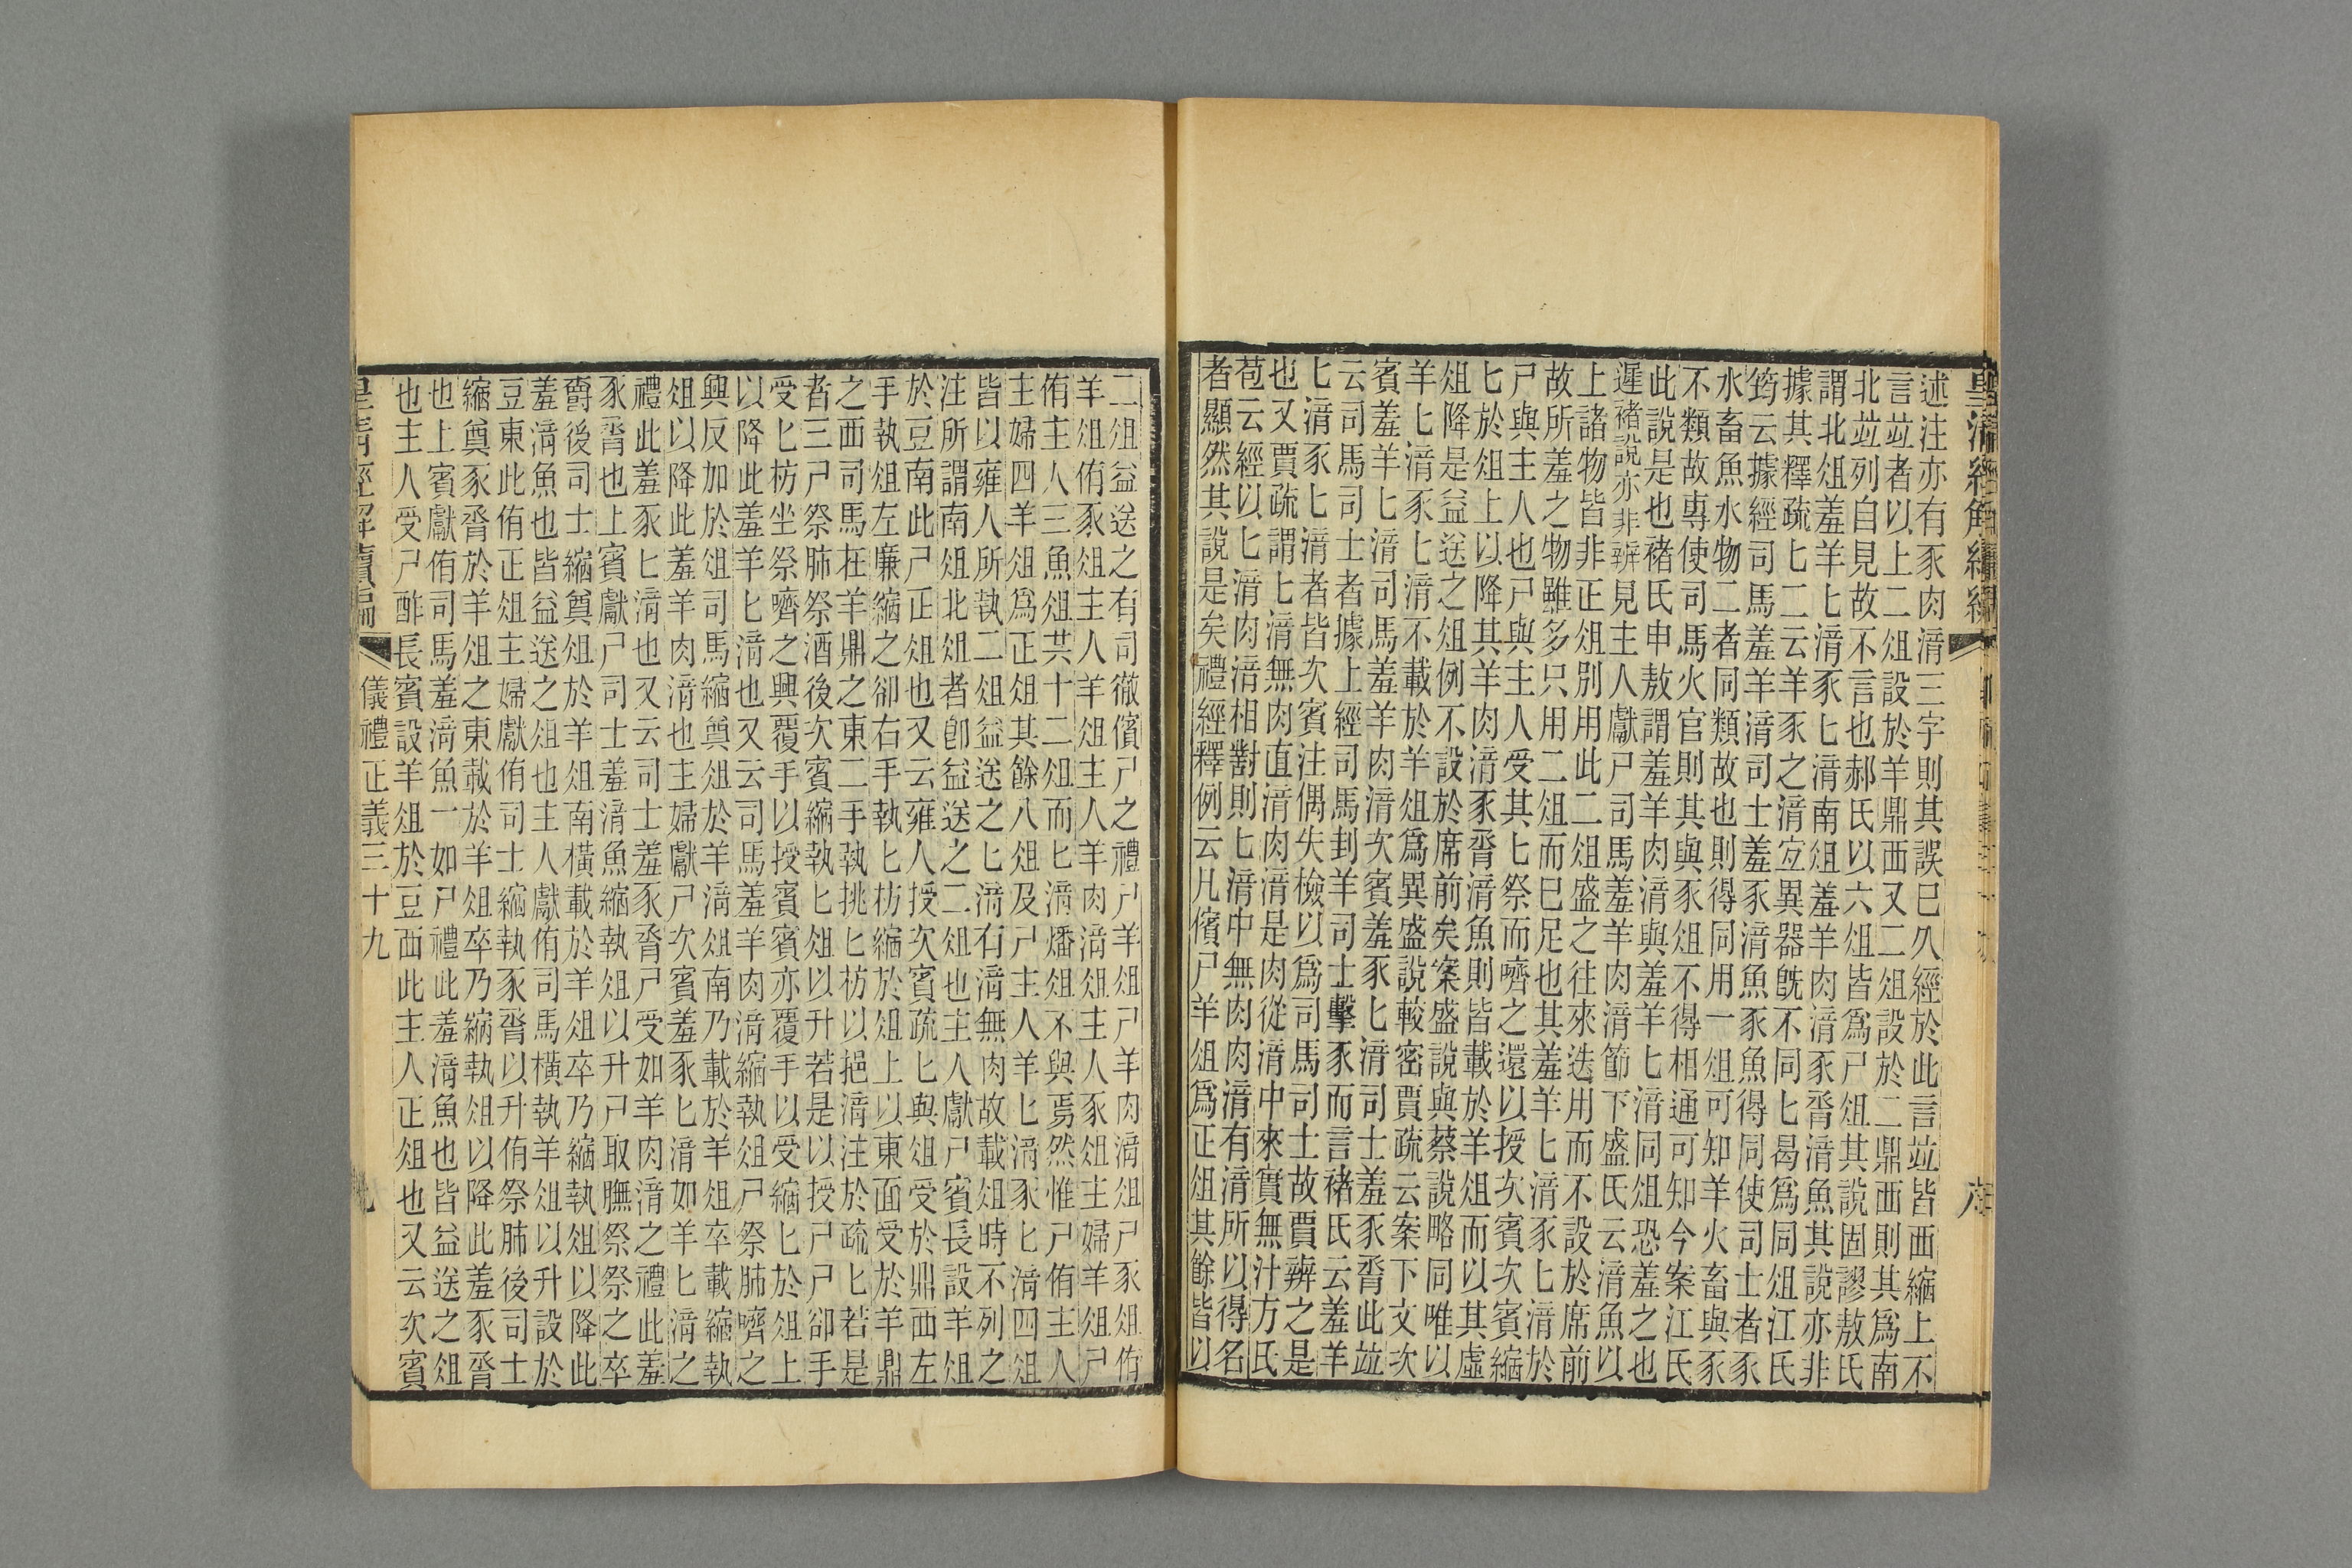 述注亦有豕肉湆三字則其誤巳久經於此言竝皆西縮上不
言竝者以上二俎設於羊鼎西又二俎設於二鼎西則其爲南
北竝列自見故不言也郝氏以六俎皆爲尸俎其說固謬敖氏
謂北俎羞羊匕湆豕匕湆南俎羞羊肉湆豕脀湆魚其說亦非
據其釋疏匕二云羊豕之湆宜異器旣不同匕曷爲同俎江氏
筠云據經司馬羞羊湆司士羞豕湆魚豕魚得同使司士者豕
水畜魚水物二者同類故也則得同用一俎可知羊火畜與豕
不類故專使司馬火官則其與豕俎不得相通可知今案江氏
此說是也褚氏申敖謂羞羊肉湆與羞羊匕湆同俎恐羞之也
遲褚說亦非辨見主人獻尸司馬羞羊肉湆節下盛氏云湆魚以
上諸物皆非正俎別用此二俎盛之往來迭用而不設於席前
故所羞之物雖多只用二俎而巳足也其羞羊匕湆豕匕湆於
尸與主人也尸與主人受其匕祭而嚌之還以授次賓次賓縮
匕於俎上以降其羊肉湆豕脀湆魚則皆載於羊俎而以其虛
俎降是益送之俎例不設於席前矣案盛說與蔡說略同唯以
羊匕湆豕匕湆不載於羊俎爲異盛說較密賈疏云案下文次
賓羞羊匕湆司馬羞羊肉湆次賓羞豕匕湆司士羞豕脀此竝
云司馬司士者據上經司馬刲羊司士擊豕而言褚氏云羞羊
匕湆豕匕湆者皆次賓注偶失檢以爲司馬司士故賈辨之是
也又賈疏謂匕湆無肉直湆肉湆是肉從湆中來實無汁方氏
苞云經以匕湆肉湆相對則匕湆中無肉肉湆有湆所以得名
者顯然其說是矣禮經釋例云凡儐尸羊俎爲正俎其餘皆以
二俎益送之有司徹儐尸之禮尸羊俎尸羊肉湆俎尸豕俎侑
羊俎侑豕俎主人羊俎主人羊肉湆俎主人豕俎主婦羊俎尸
侑主人三魚俎共十二俎而匕湆燔俎不與焉然惟尸侑主人
主婦四羊俎爲正俎其餘八俎及尸主人羊匕湆豕匕湆四俎
皆以雍人所執二俎益送之匕湆石湆無肉故載俎時不列之
注所謂南俎北俎者卽益送之二俎也主人獻尸賓長設羊俎
於豆南此尸正俎也又云雍人授次賓疏匕與俎受於鼎西左
手執俎左廉縮之卻右手執匕枋縮於俎上以東面受於羊鼎
之西司馬在羊鼎之東二手執挑匕枋以挹湆注於疏匕若是
者三尸祭肺祭酒後次賓縮執匕俎以升若是以授尸尸卻手
受匕枋坐祭嚌之興覆手以授賓賓亦覆手以受縮匕於俎上
以降此羞羊匕湆也又云司馬羞羊肉湆縮執俎尸祭肺嚌之
興反加於俎司馬縮奠俎於羊湆俎南乃載於羊俎卒載縮執
俎以降此羞羊肉湆也主婦獻尸次賓羞豕匕湆如羊匕湆之
禮此羞豕匕湆也又云司士羞豕脀尸受如羊肉湆之禮此羞
豕脀也上賓獻尸司士羞湆魚縮執俎以升尸取膴祭祭之卒
爵後司士縮奠俎於羊俎南橫載於羊俎卒乃縮執俎以降此
羞湆魚也皆益送之俎也主人獻侑司馬橫執羊俎以升設於
豆東此侑正俎主婦獻侑司士縮執豕脀以升侑祭肺後司士
縮奠豕脀於羊俎之東載於羊俎卒乃縮執俎以降此羞豕脀
也上賓獻侑司馬羞湆魚一如尸禮此羞湆魚也皆益送之俎
也主人受尸酢長賓設羊俎於豆西此主人正俎也又云次賓
皇清經解續編 儀禮正義三十九